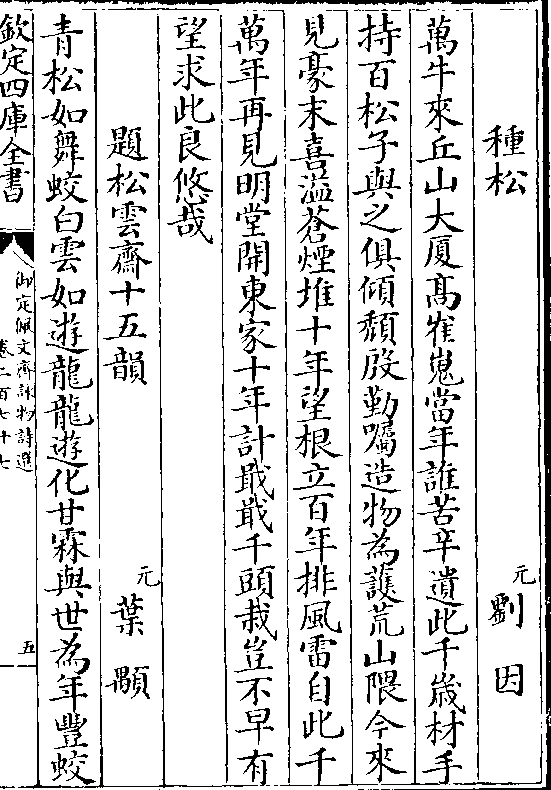 種松
元劉因
萬牛來丘山大厦髙嶊嵬當年誰苦辛遺此千歲材手
持百松子與之俱傾頽殷勤囑造物為護荒山隈今來
見豪末喜溢蒼煙堆十年望根立百年排風雷自此千
萬年再見明堂開東家十年計戢戢千頭栽豈不早有
望求此良悠哉
題松雲齋十五韻
元葉顒
青松如舞蛟白雲如遊龍龍遊化甘霖與世為年豐蛟
欽定四庫全書
御定佩文齋詠物詩選
卷二百七十七
五